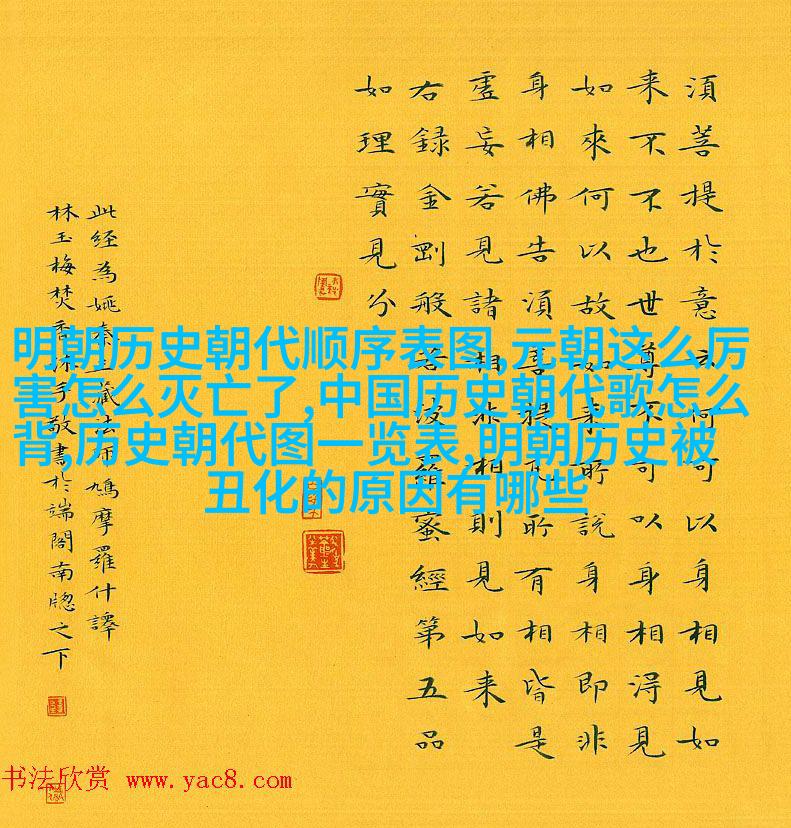 須菩提於意云何可以身相見如
来不不也世尊不可以身相得見
如來何以故如来所說身相即非
身相佛告須菩提凡所有相皆是
虛妄若見諸相非相則見如来
右録金剛般若波羅蜜經第五品
如理實見分
此经為姚秦三藏法师鳩摩羅什譯
林玉梅焚香沐手敬書於端閣南牕之下
明朝历史朝代顺序表图,元朝这么厉
害怎么灭亡了,中国历史朝代歌怎么
背,历史朝代图一览表,明朝历史被
丑化的原因有哪些
书法欣赏 www.yac8.com